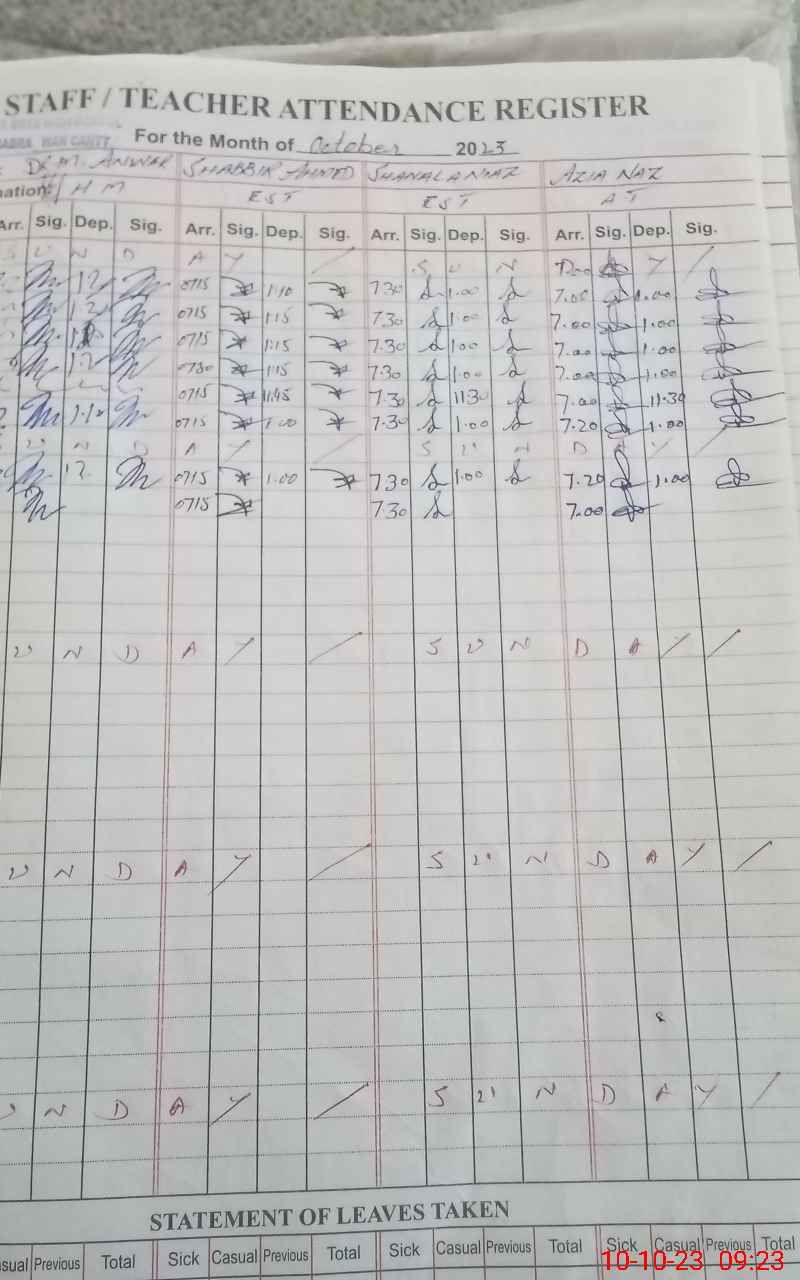 STAFF / TEACHER ATTENDANCE REGISTER
For the Month of October 2023
DR M. ANWAR SHABBIR AHMED AZIA NAZ
H M EST EST AT
Arr. Sig. Dep. Sig. Arr. Sig. Dep. Sig. Arr. Sig. Dep. Sig. Arr. Sig. Dep. Sig.
S U N D A Y / S U N Y /
0715 1:10 7.30 1.00 7.00 1.00
0715 1:15 7.30 1.00 7.00 1.00
0715 1:15 7.30 1.00 7.00 1.00
0730 1:15 7.30 1.00 7.00 1.00
0715 11:45 7.30 11.30 7.00 11.30
0715 1.00 7.30 1.00 7.20 1.00
U N D A Y / S U N D A Y /
12 0715 1.00 7.30 1.00 7.20 1.00
0715 7.30 7.00
U N D A Y / S U N D A Y /
U N D A Y / S U N D A Y /
U N D A Y / S U N D A Y /
STATEMENT OF LEAVES TAKEN
Previous Total Sick Casual Previous Total Sick Casual Previous Total Sick Casual Previous Total
10-10-23 09:23